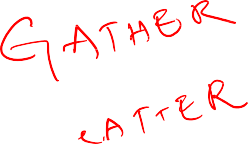 GATHER
LATTER